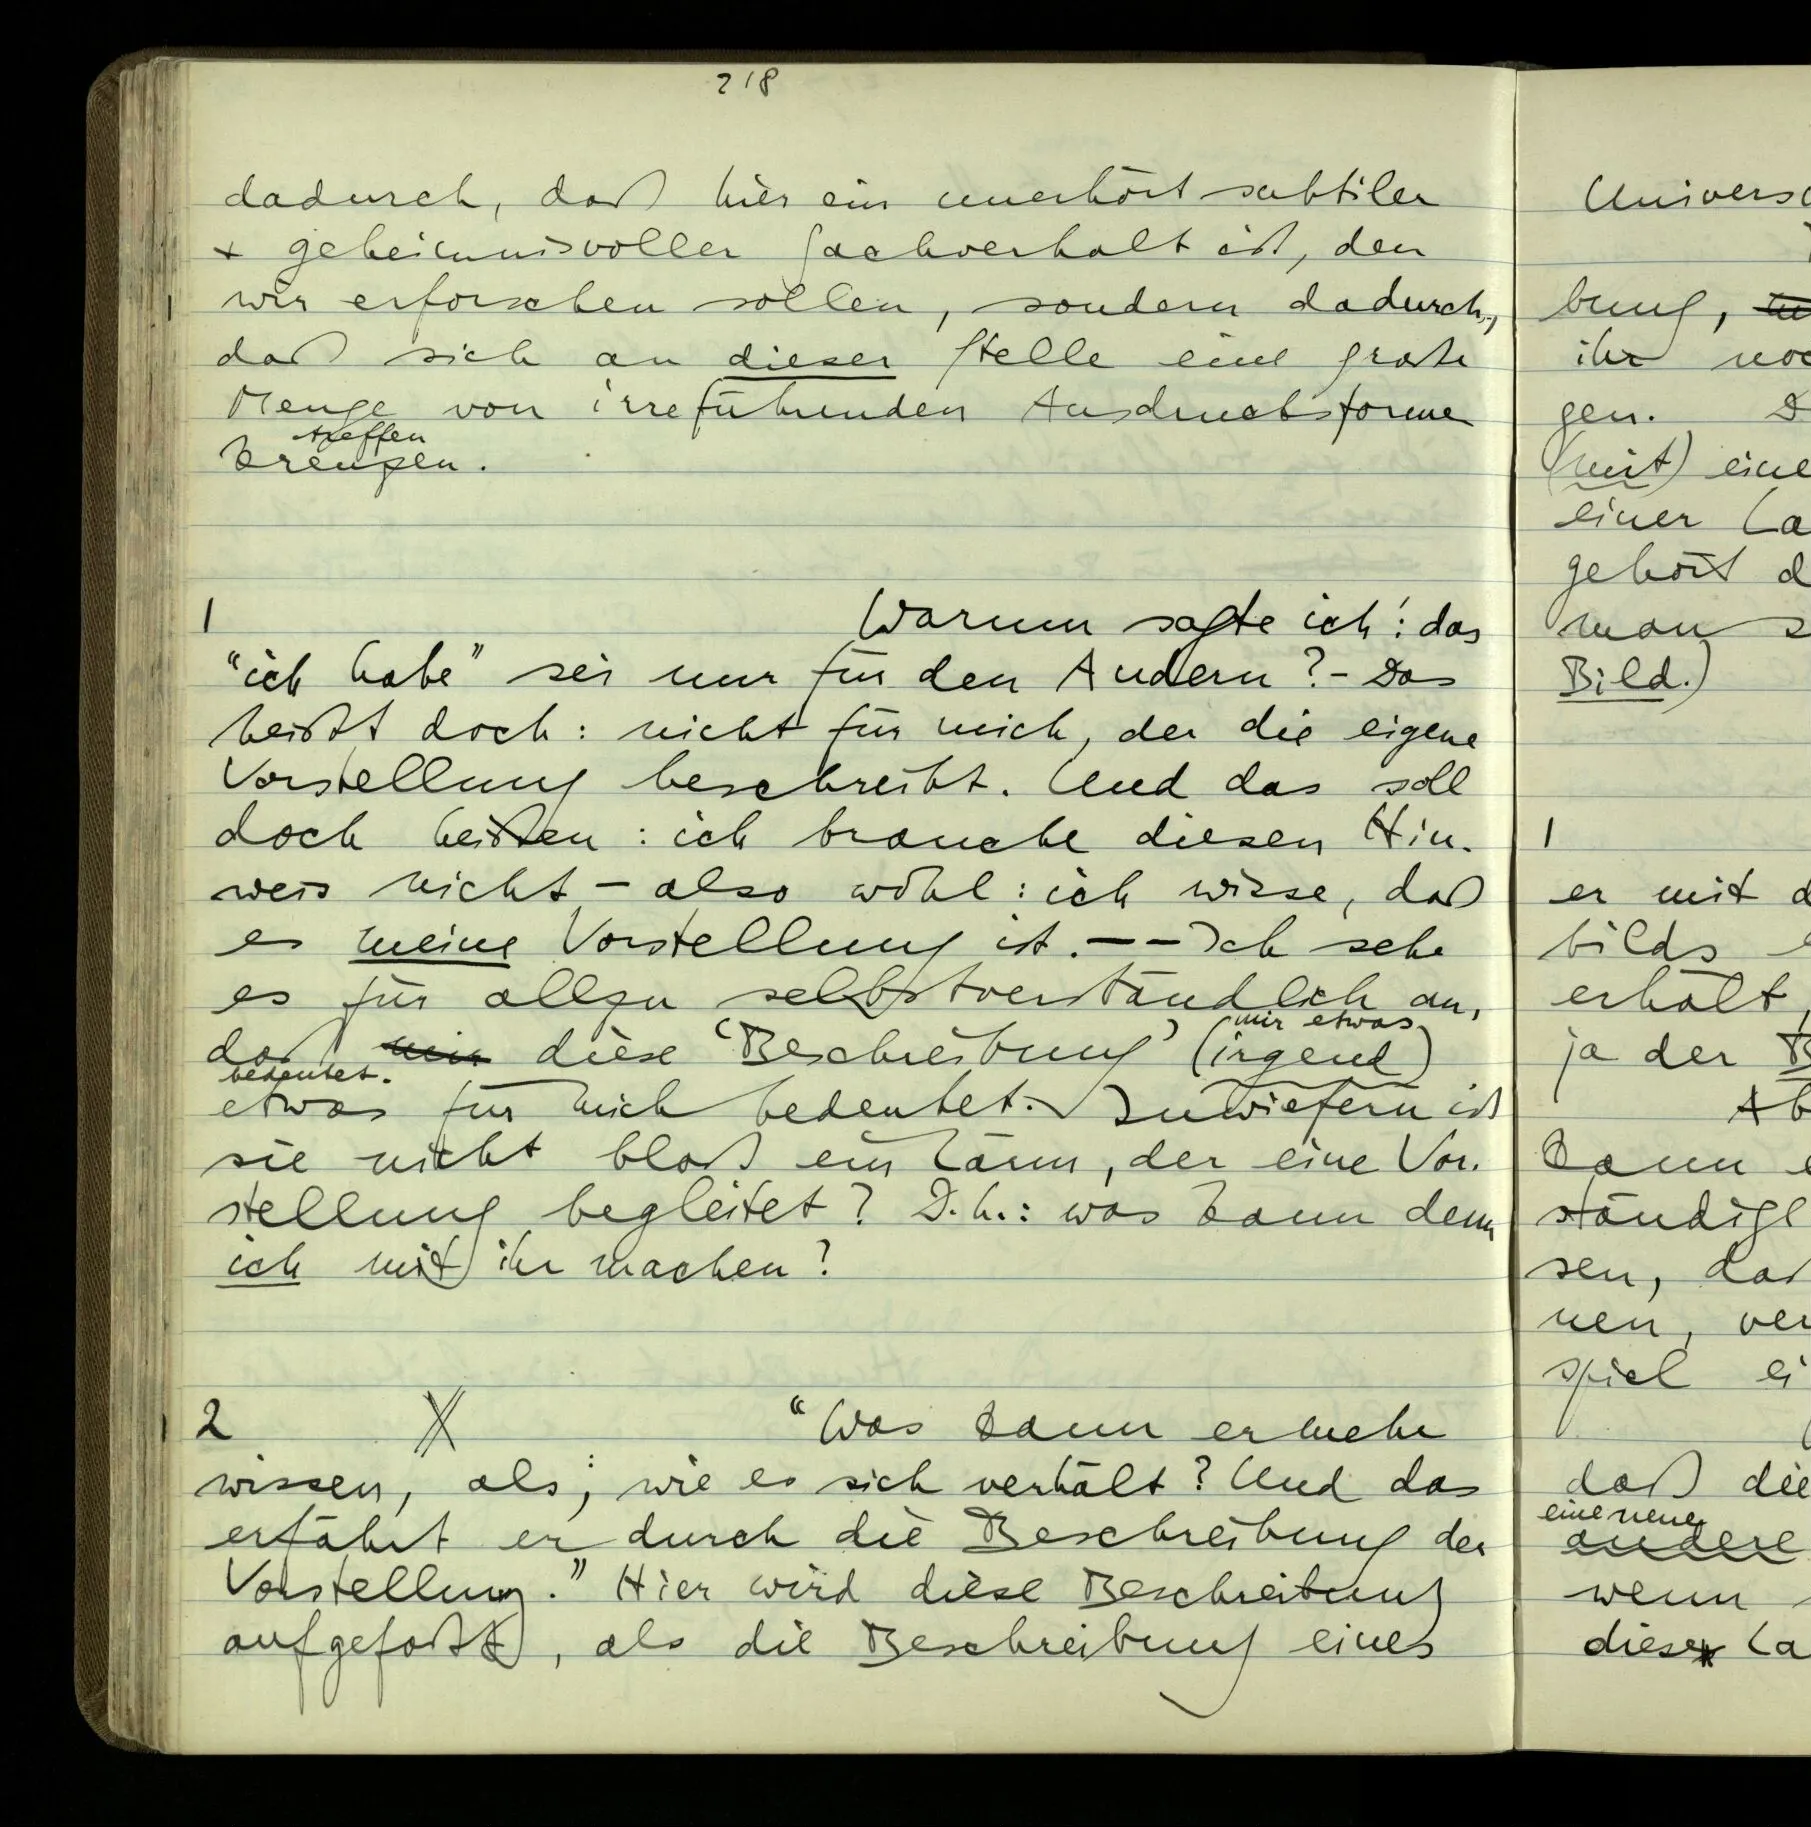 218
dadurch, daß hier ein unerhört subtiler
+ geheimnisvoller Sachverhalt ist, den
wir erforschen sollen, sondern dadurch,
daß sich an dieser Stelle eine große
Menge von irreführenden Ausdrucksformen
treffen
kreuzen.
1 Warum sagte ich: das
“ich habe” sei nur für den Andern? – Das
heißt doch: nicht für mich, der die eigene
Vorstellung beschreibt. Und das soll
doch heißen: ich brauche diesen Hin-
weis nicht – also wohl: ich wisse, daß
es meine Vorstellung ist. – – Ich sehe
es für allzu selbstverständlich an,
mir etwas
daß diese ‘Beschreibung’ (irgend)
bedeutet.
etwas für mich bedeutet. Inwiefern ist
sie nicht bloß ein Lärm, der eine Vor-
stellung begleitet? D.h.: was kann denn
ich mit ihr machen?
2 “Was kann er mehr
wissen, als, wie es sich verhält? Und das
erfährt er durch die Beschreibung der
Vorstellung.” Hier wird diese Beschreibung
aufgefaßt, als die Beschreibung eines
bung,
ihr
gen.
(mit) eine
einer
gehört
man
Bild.)
1
er mit
bilds
erhält,
ja der
kann
sen,
spiel
daß die
eine neue
andere
wenn